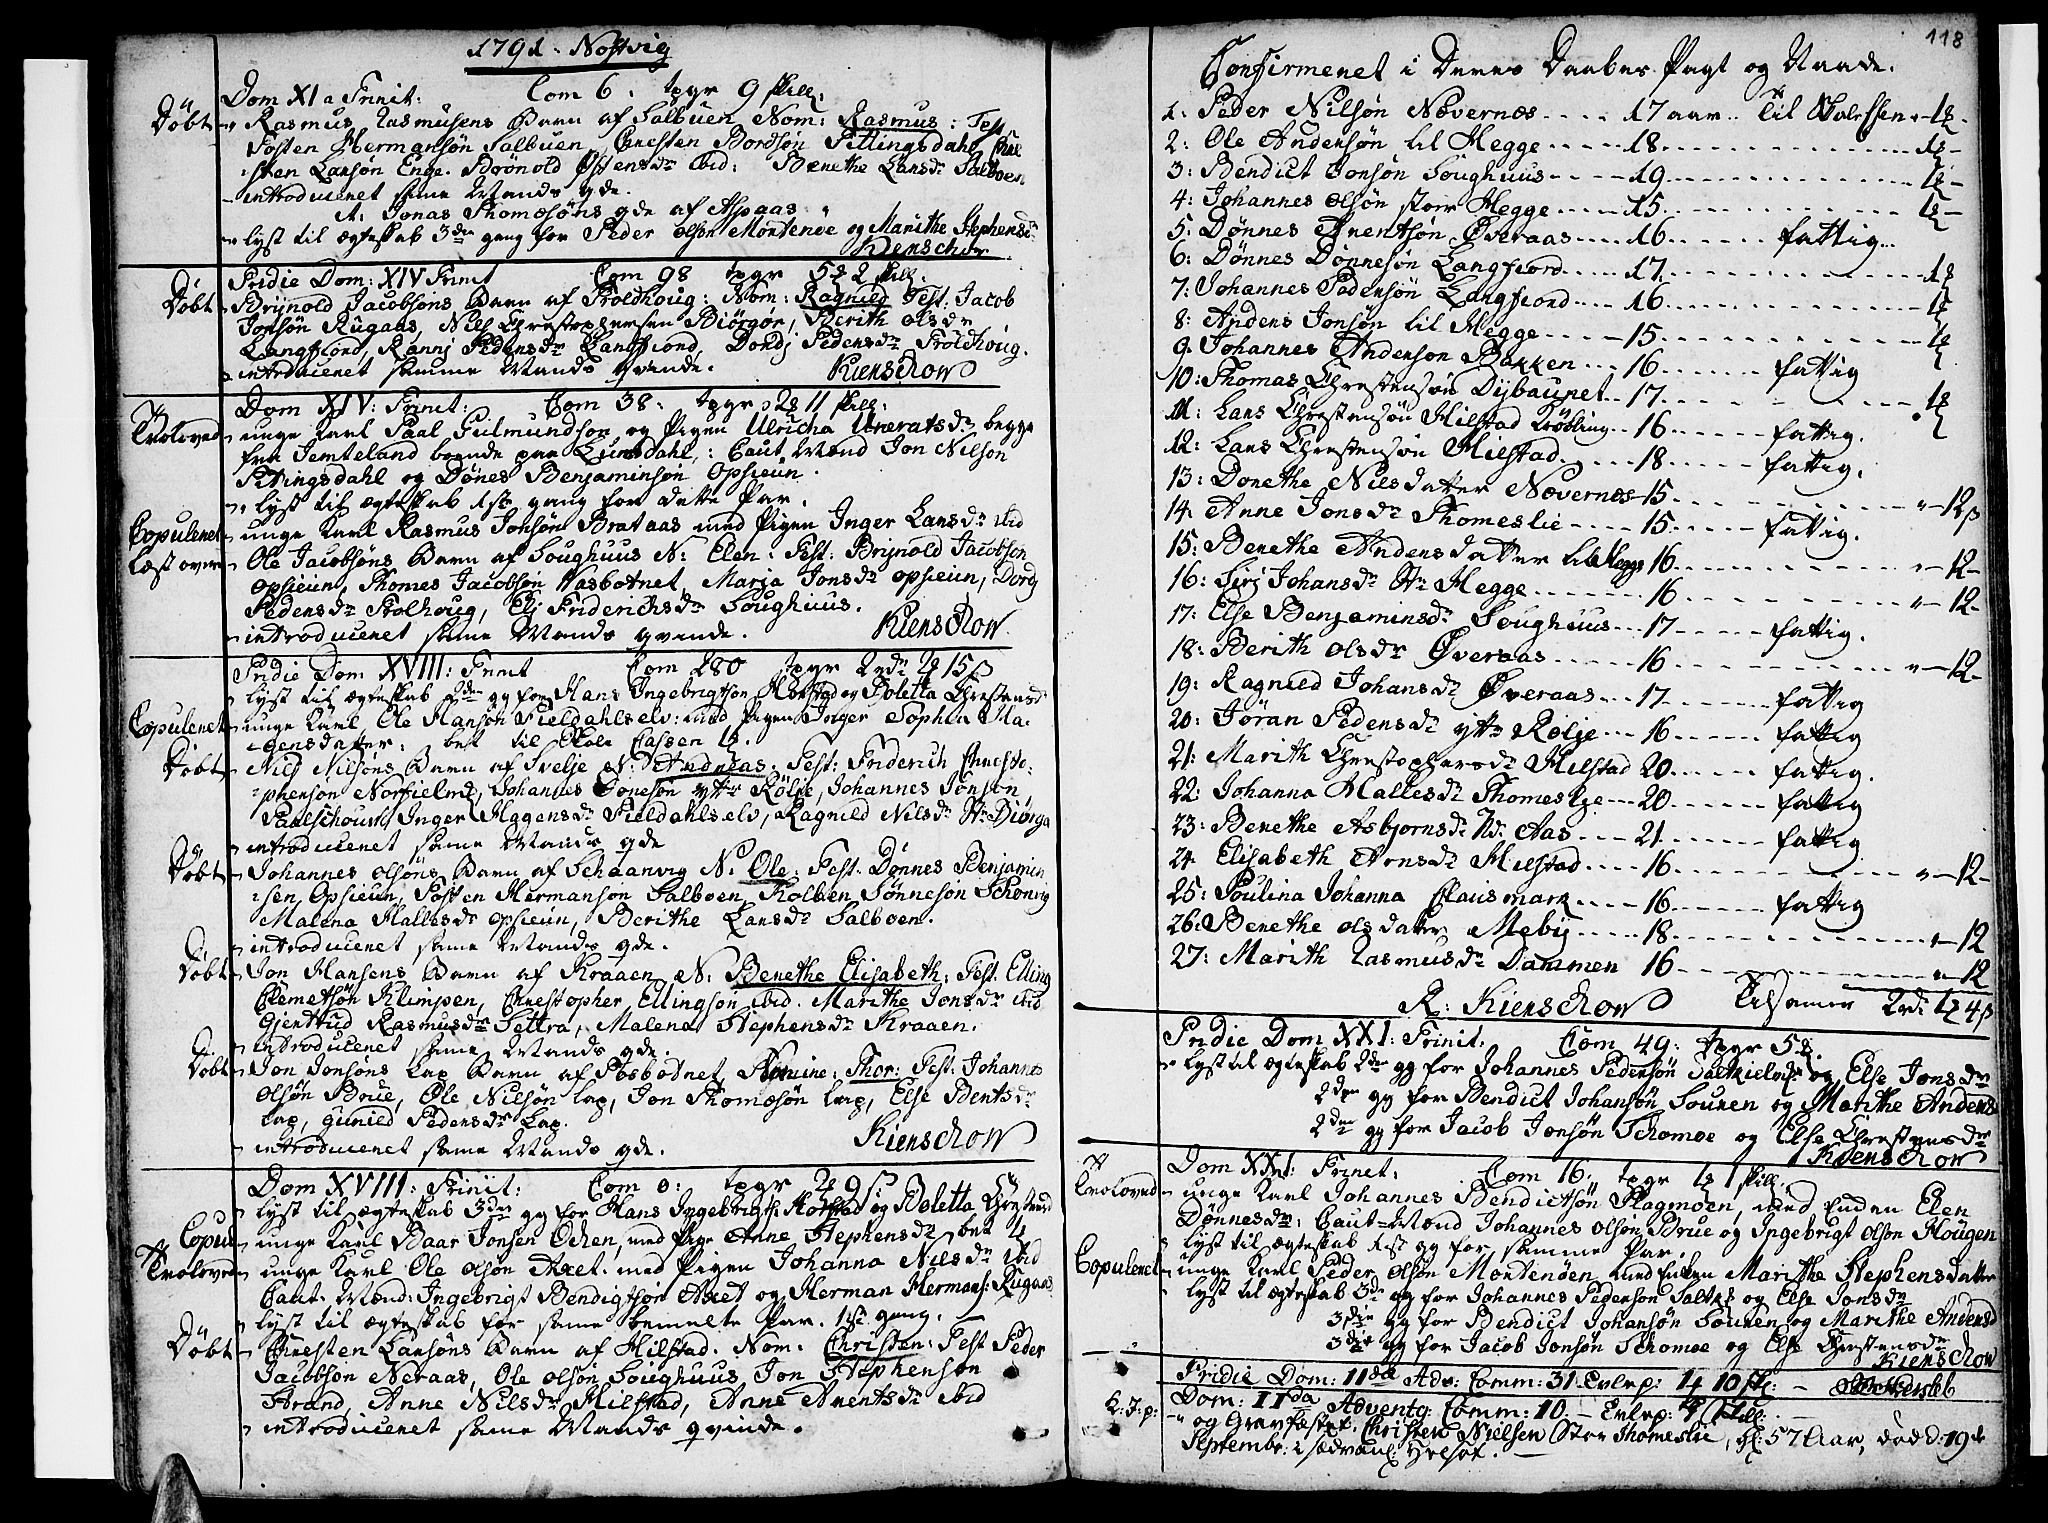 1791. Nostvig
Dom XI a Trinit: Com 6. tpgr 9 skill.
Døbt Rasmus Rasmusens Barn af Salbuen Nom: Rasmus: Test
Tosten Hermansøn Salbuen, Christen Bordsøn Fittingsdahl, Chri
sten Larsøn Enge. Brønold Østensdr ibid: Berethe Larsdr Salboen
introduceret samme Mands qde.
A: Jonas Thomesøns qde af Aspaas
lyst til ægteskab 3de gang for Peder Olsøn Mordenøe og Marithe Stephensdr
Kienschow
Pridie Dom: XIV Trinit Com 98 tpgr 5 2 skill.
Døbt Brynold Jacobsøns Barn af Troldhoug: Nom: Ragnild Test. Jacob
Jonsøn Rugaas, Nils Christophersen Biørgør, Berith Olsdr
Langfiord, Rannj Pedersdr Langfiord, Dordj Pedersdr Troldhoug.
introduceret samme Mands qvinde. Kienschow
Dom XIV: Trinit: Com 38: tpgr 2 11 skill:
Troloved unge Karl Paal Gulmundson og Pigen Ulricha Uneratsdr begge
fra Jemteland boende paa Lunsdahl,: Caut Mænd Jon Nilsøn
Fitingsdahl og Dønes Benjaminsøn Opsieun.
lyst til ægteskab 1ste gang for dette Par.
Copuleret unge Karl Rasmus Jonsøn Brataas med Pigen Inger Larsdr ibid
Læst over Ole Jacobsøns Barn af Soughuus N: Elen: Test: Brynold Jacobsøn
Opsieun, Thomes Jacobsøn Vasbotnet, Marja Jonsdr opsieun, Dordj
Pedersdr Trolhoug, Elj Friderichsdr Soughuus.
introduceret samme Mands qvinde. Kienschow
Pridie Dom XVIII: Trinit Com 280 tpgr 2rdr 2 15s
lyst til ægteskab 2den gg for Hans Ingebrigtsøn Horstad og Boletta Christensd
Copuleret unge Karl Ole Hansøn Fieldahlselv: med Pigen Inger Sophia Ma-
gensdatter: bet til Skole Cassen
Døbt Nils Nilsøns Barn af Svelje N: Andreas. Test: Friderich Christo-
phersøn Norfielme, Johannes Jonesøn yttr Rølje, Johannes Jonsøn
Paalschouw, Inger Haggensdr Fieldahlselv, Ragnild Nilsdr Str Biørga
introduceret samme Mands qde
Døbt Johannes Olsøns Barn af Schaanvig N. Ole: Test. Dønnes Benjamin
sen, Opsieun, Tosten Hermansøn Salboen, Kolben Tønnesøn Schonvig
Malena Hallesdr opsieun, Berithe Larsdr Salboen.
introduceret samme Mands qde.
Døbt Jon Hansens Barn af Kraaen, N: Berethe Elisabeth: Test. Elling
Clemetsøn Klimpen, Christopher, Ellingsøn ibid. Marithe Jonsdr ibid
Gjertrud Rasmusdr Settra, Malena Stephensdr Kraaen.
introduceret samme Mands qde.
Døbt Jon Jonsøns Lap Barn af Posbotnet, Thor: Test: Johannes
Olsøn Brue, Ole Nilsøn lap, Jon Thomesøn lap, Else Bentsdr
lap, gunild Pedersdr lap.
introduceret samme Mands qde. Kienschow
Dom XVIII: Trinit: Com 0: tpgr 2 9s:
lyst til ægteskab 3den gg for Hans Ingebrigts: Horstad og Boletta Christensd
Copul unge Karl Baar Jonsen Ochen, med Pige Anne Stephensdr bet
Troloved unge Karl Ole olsøn Axet. med Pigen Johanna Nilsdr ibid
Caut. Mænd: Ingebrigt Bendigtsøn Axet og Herman Hermans: Rugaas
lyst til ægteskab før same bemelte Par. 1ste gang.
Døbt Christen Larsøns Barn af Hilstad. Nom. Christen: Test Peder
Jacobsøn Neraas, Ole olsøn Soughuus, Jon Stephensøn
Strand, Anne Nilsdr Milstad, Anne Arentsdr ibid
introduceret samme Mands qvinde.
118
Confirmeret i Deres Daabes Pagt og Naade.
1: Peder Nilsøn Nøvernæs .... 17 aar. Til Scolessen 1
2: Ole Andersøn lil Hegge .... 18 .... 1
3: Bendict Jonsøn Soughuus .... 19 .... 1
4: Johannes olsøn store Hegge .... 15 .... 1
5: Dønnes Arentsøn Øveraas .... 16 .... fattig
6: Dønnes Dønnesøn Langfiord .... 17 .... 1
7: Johannes Pedersøn Langfiord .... 16 .... 1
8: Anders Jonsøn lil Hegge .... 15 .... 1
9. Johannes Andersøn Bakken .... 16 .... fattig
10: Thomas Christensøn Dybaunet .... 17 .... 1
11. Lars Christensøn Milstad Krøbling .... 16 .... fattig.
12: Lars Christensøn Milstad .... 18 .... fattig.
13: Dorethe Nilsdatter Nøvernæs 15 .... 12s
14. Anne Jonsdr Thomeslie .... 15 .... fattig.
15: Berethe Andersdatter lil Hegge 16 .... 12
16: Sirj Johansdr Str Hegge .... 16 .... 12
17: Else Benjaminsdr Soughuus .... 17 .... fattig.
18: Berith olsdr Øveraas .... 16 .... 12
19: Ragnild Johansdr Øveraas .... 17 .... fattig
20: Jøran Pedersdr yttr Rølje .... 16 .... fattig
21: Marith Christophersdr Milstad 20 .... fattig.
22: Johanna Hallesdr Thomeslje .... 20 .... fattig
23: Berethe Asbjørnsdr Ndr Aas .... 21 .... fattig
24. Elisabeth Arnsdr Milstad .... 16 .... 12
25: Poulina Johanna Clausmark .... 16 .... fattig
26. Berethe olsdatter Mebij .... 18 .... 12
27: Marith Rasmusdr Dammen 16 .... 12
R: Kienschow Tilsamen 2rdr 1 4s
Pridie Dom XXI: Trinit. Com 49: tpgr 5
lyst til ægteskab 2den gg for Johannes Pedersøn Saltkielmsr og Else Jonsdr
2den gg for Bendict Johansøn Souren og Marithe Andersd
2den gg for Jacob Jonsøn Schomøe og Else Christensdr
Kienschow
Dom XXI: Trinit: Com 16. tpgr 1 1 skill.
Troloved unge Karl Johannes Bendictsøn Slagmoen, med Enken Elen
Dønnesdr: Caut-Mænd Johannes olsøn Brue og Ingebrigt olsøn Hougen
lyst til ægteskab 1st gg for samme Par.
Copuleret unge Karl Peder Olsøn Mortenøen med Enken Marithe Stephensdatter
lyst til ægteskab 3de gg for Johannes Pedersøn Salt og Else Jonsdr
3die gg for Bendict Johansøn Souren og Marithe Andersd
3die gg for Jacob Jonsøn Schomøe og Else Christensdr
Kienschow
Pridie Dom: 11da Adv: Comm: 31. Evlrp: 1 10 sk: —
Dom: IIda Adventg. Comm: 10. — Evlrp: skill:
K: J: p: og Gravfæstet: Christen Nielsen Stor Thomeslie, gl: 57 Aar, død d: 19de
Septembr: i sædvanl: Helsot. —